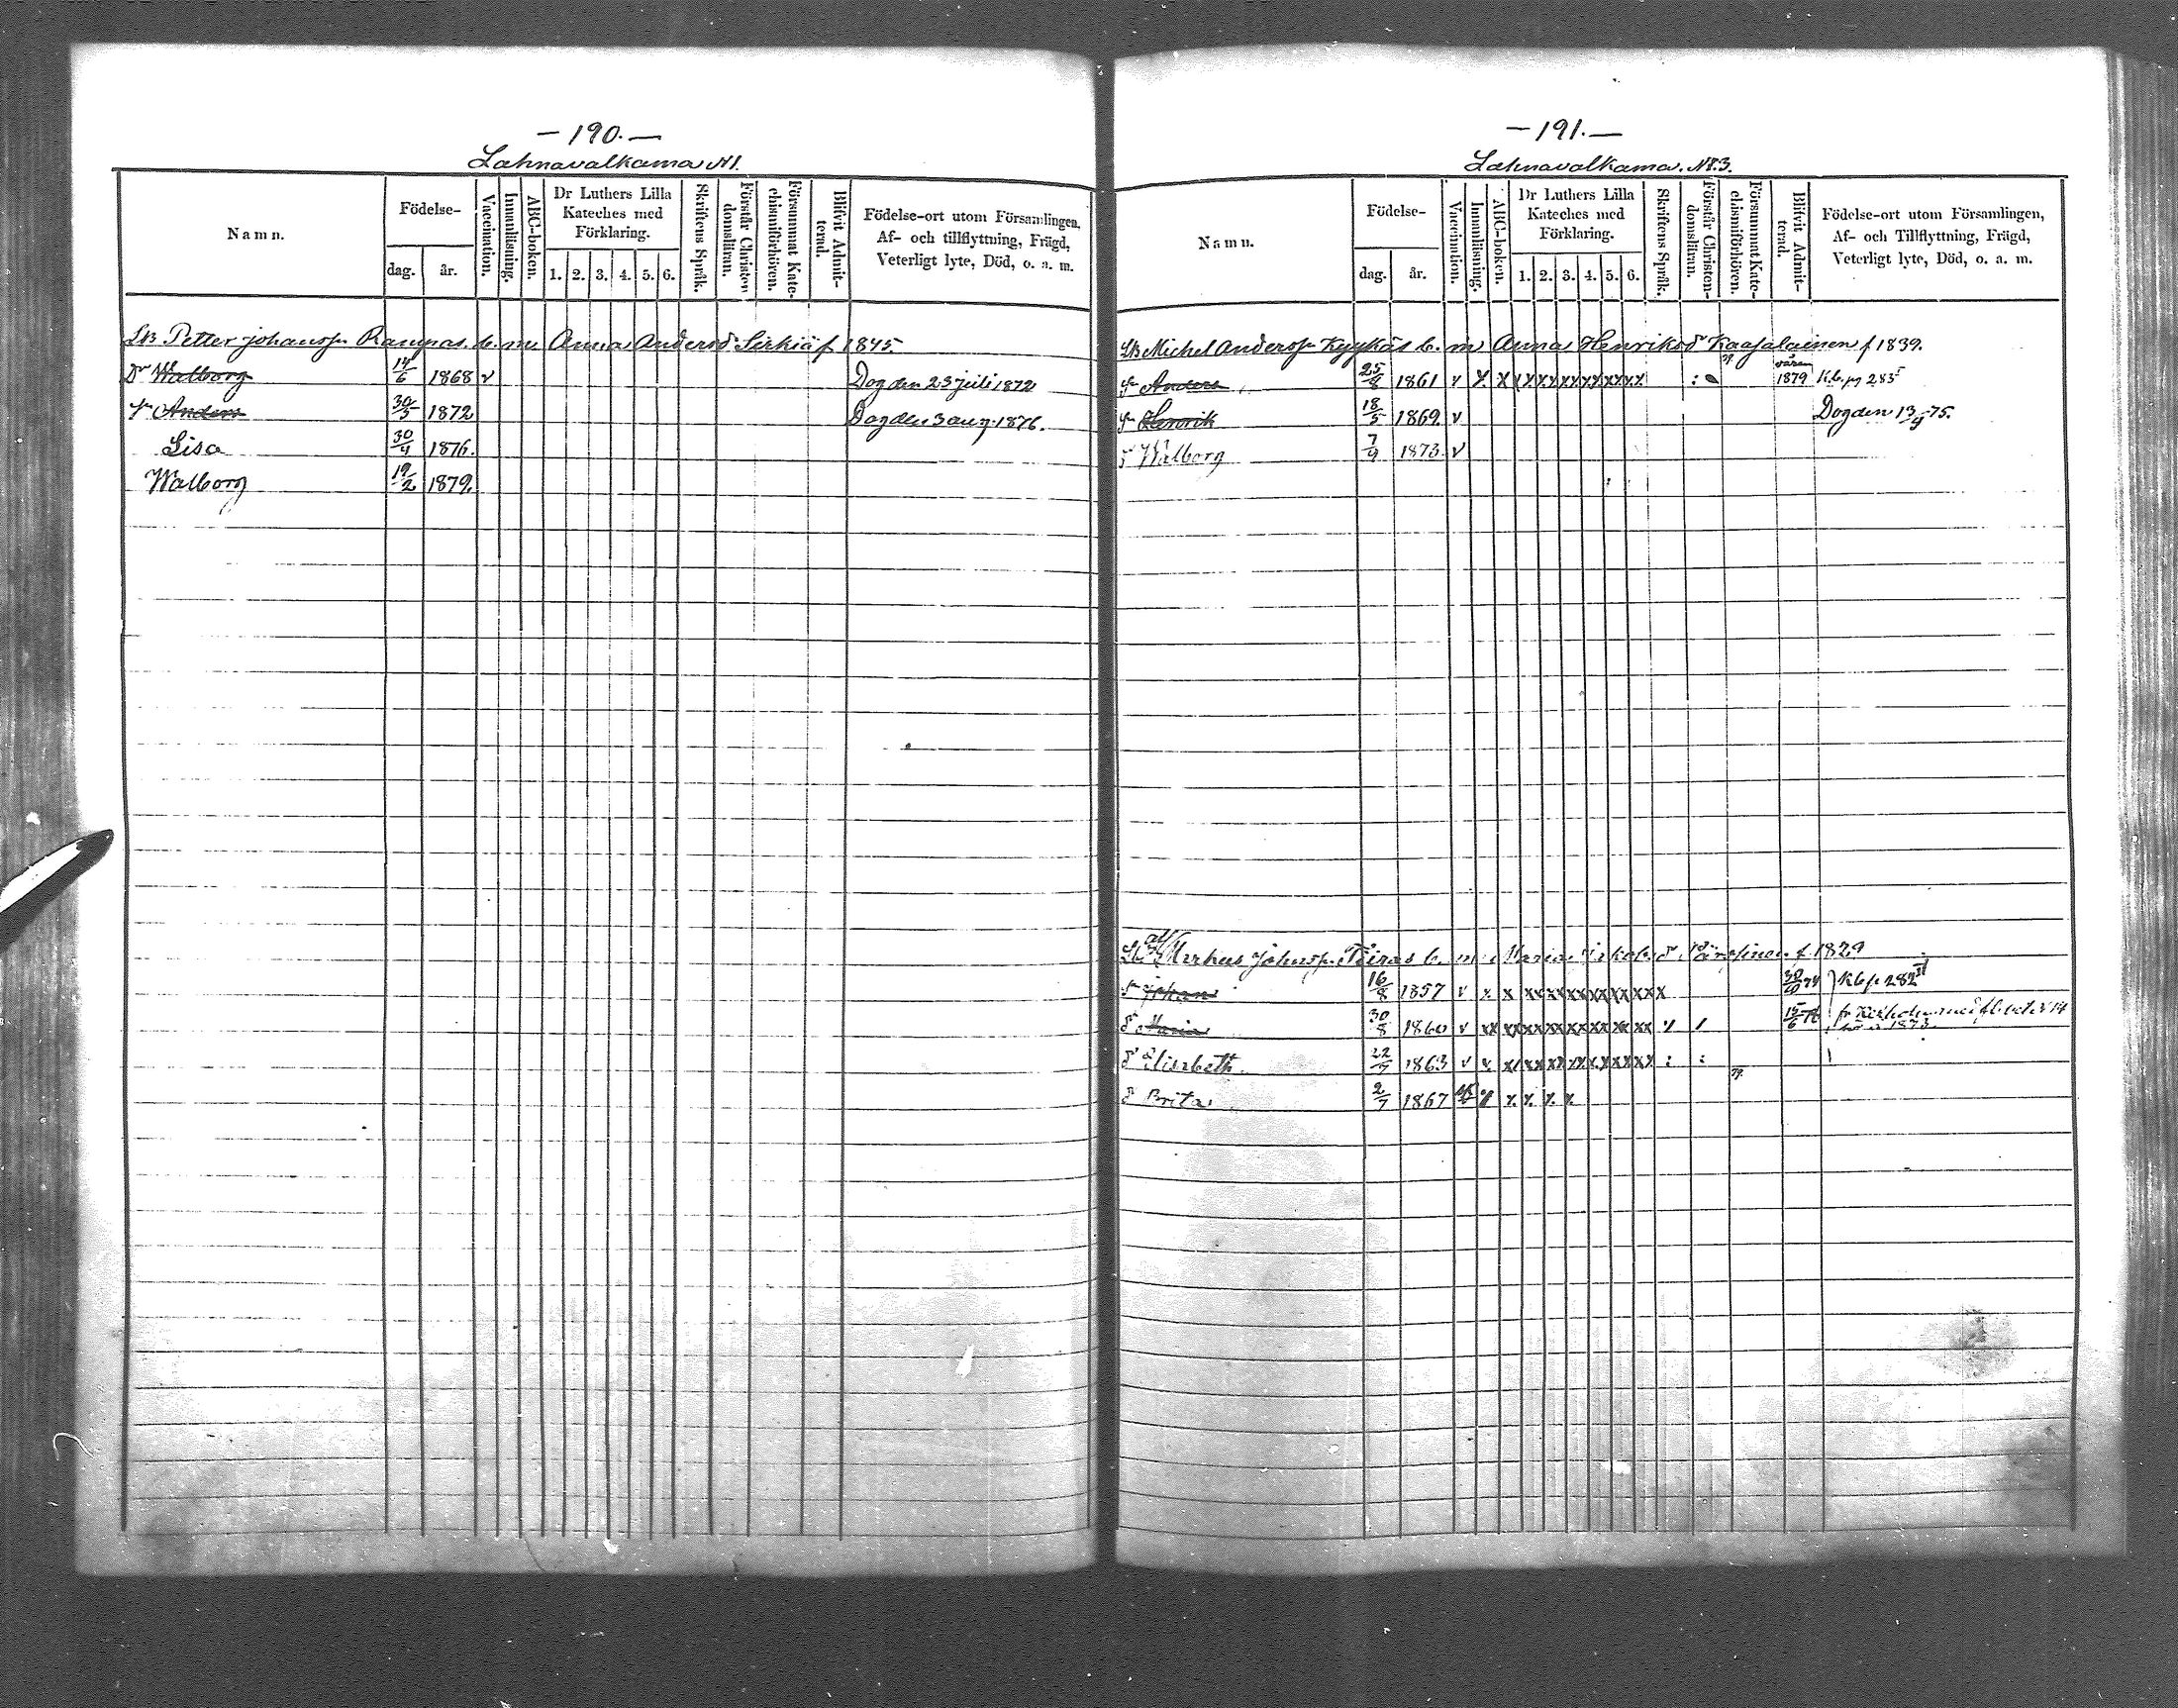 — 190. —
Lahnavalkama N1.
Namn.
Födelse-
dag.
år.
Vaccination.
Innanläsning.
ABC-boken.
Dr Luthers Lilla
Kateches med
Förklaring.
1. 2. 3. 4. 5. 6.
Skriftens Språk.
Förstår Christen-
domsläran.
Försummat Kate-
chismiförhören.
Blifvit Admit-
terad.
Födelse-ort utom Församlingen,
Af- och tillflyttning, Frägd,
Veterligt lyte, Död, o. a. m.
Petter Johanss. b. m. Anna Andersd. Sirkiä f. 1845.
Dr Walborg 14/6 1868 v Dog den 23 juli 1872
Anders 30/5 1872 Dog den 3 aug. 1876.
Lisa 30/4 1876.
Walborg 19/2 1879.
— 191. —
Lahnavalkama. N:3.
Namn.
Födelse-
dag.
år.
Vaccination.
Innanläsning.
ABC-boken.
Dr Luthers Lilla
Kateches med
Förklaring.
1. 2. 3. 4. 5. 6.
Skriftens Språk.
Förstår Christen-
domsläran.
Försummat Kate-
chismiförhören.
Blifvit Admit-
terad.
Födelse-ort utom Församlingen,
Af- och Tillflyttning, Frägd,
Veterligt lyte, Död, o. a. m.
Michel Anderss. Kyykäs b. m Anna Henriksd. Kaajalainen f 1839.
Anders 25/8 1861 v x x x x x x x x x våren 1879 K.b. pg 285
Henrik 18/5 1869 v Dog den 13/4 -75.
Walborg 7/9 1873 v
Markus Johnss. b. m. Maria f. 1829
Johan 16/8 1857 v x x x x x x x x x K b p 282
Maria 30/8 1860 v x x x x x x x x x 15/6 1873
d Elisabeth 1863 v x x x x x x x x x
d Brita 2/7 1867 x x x x